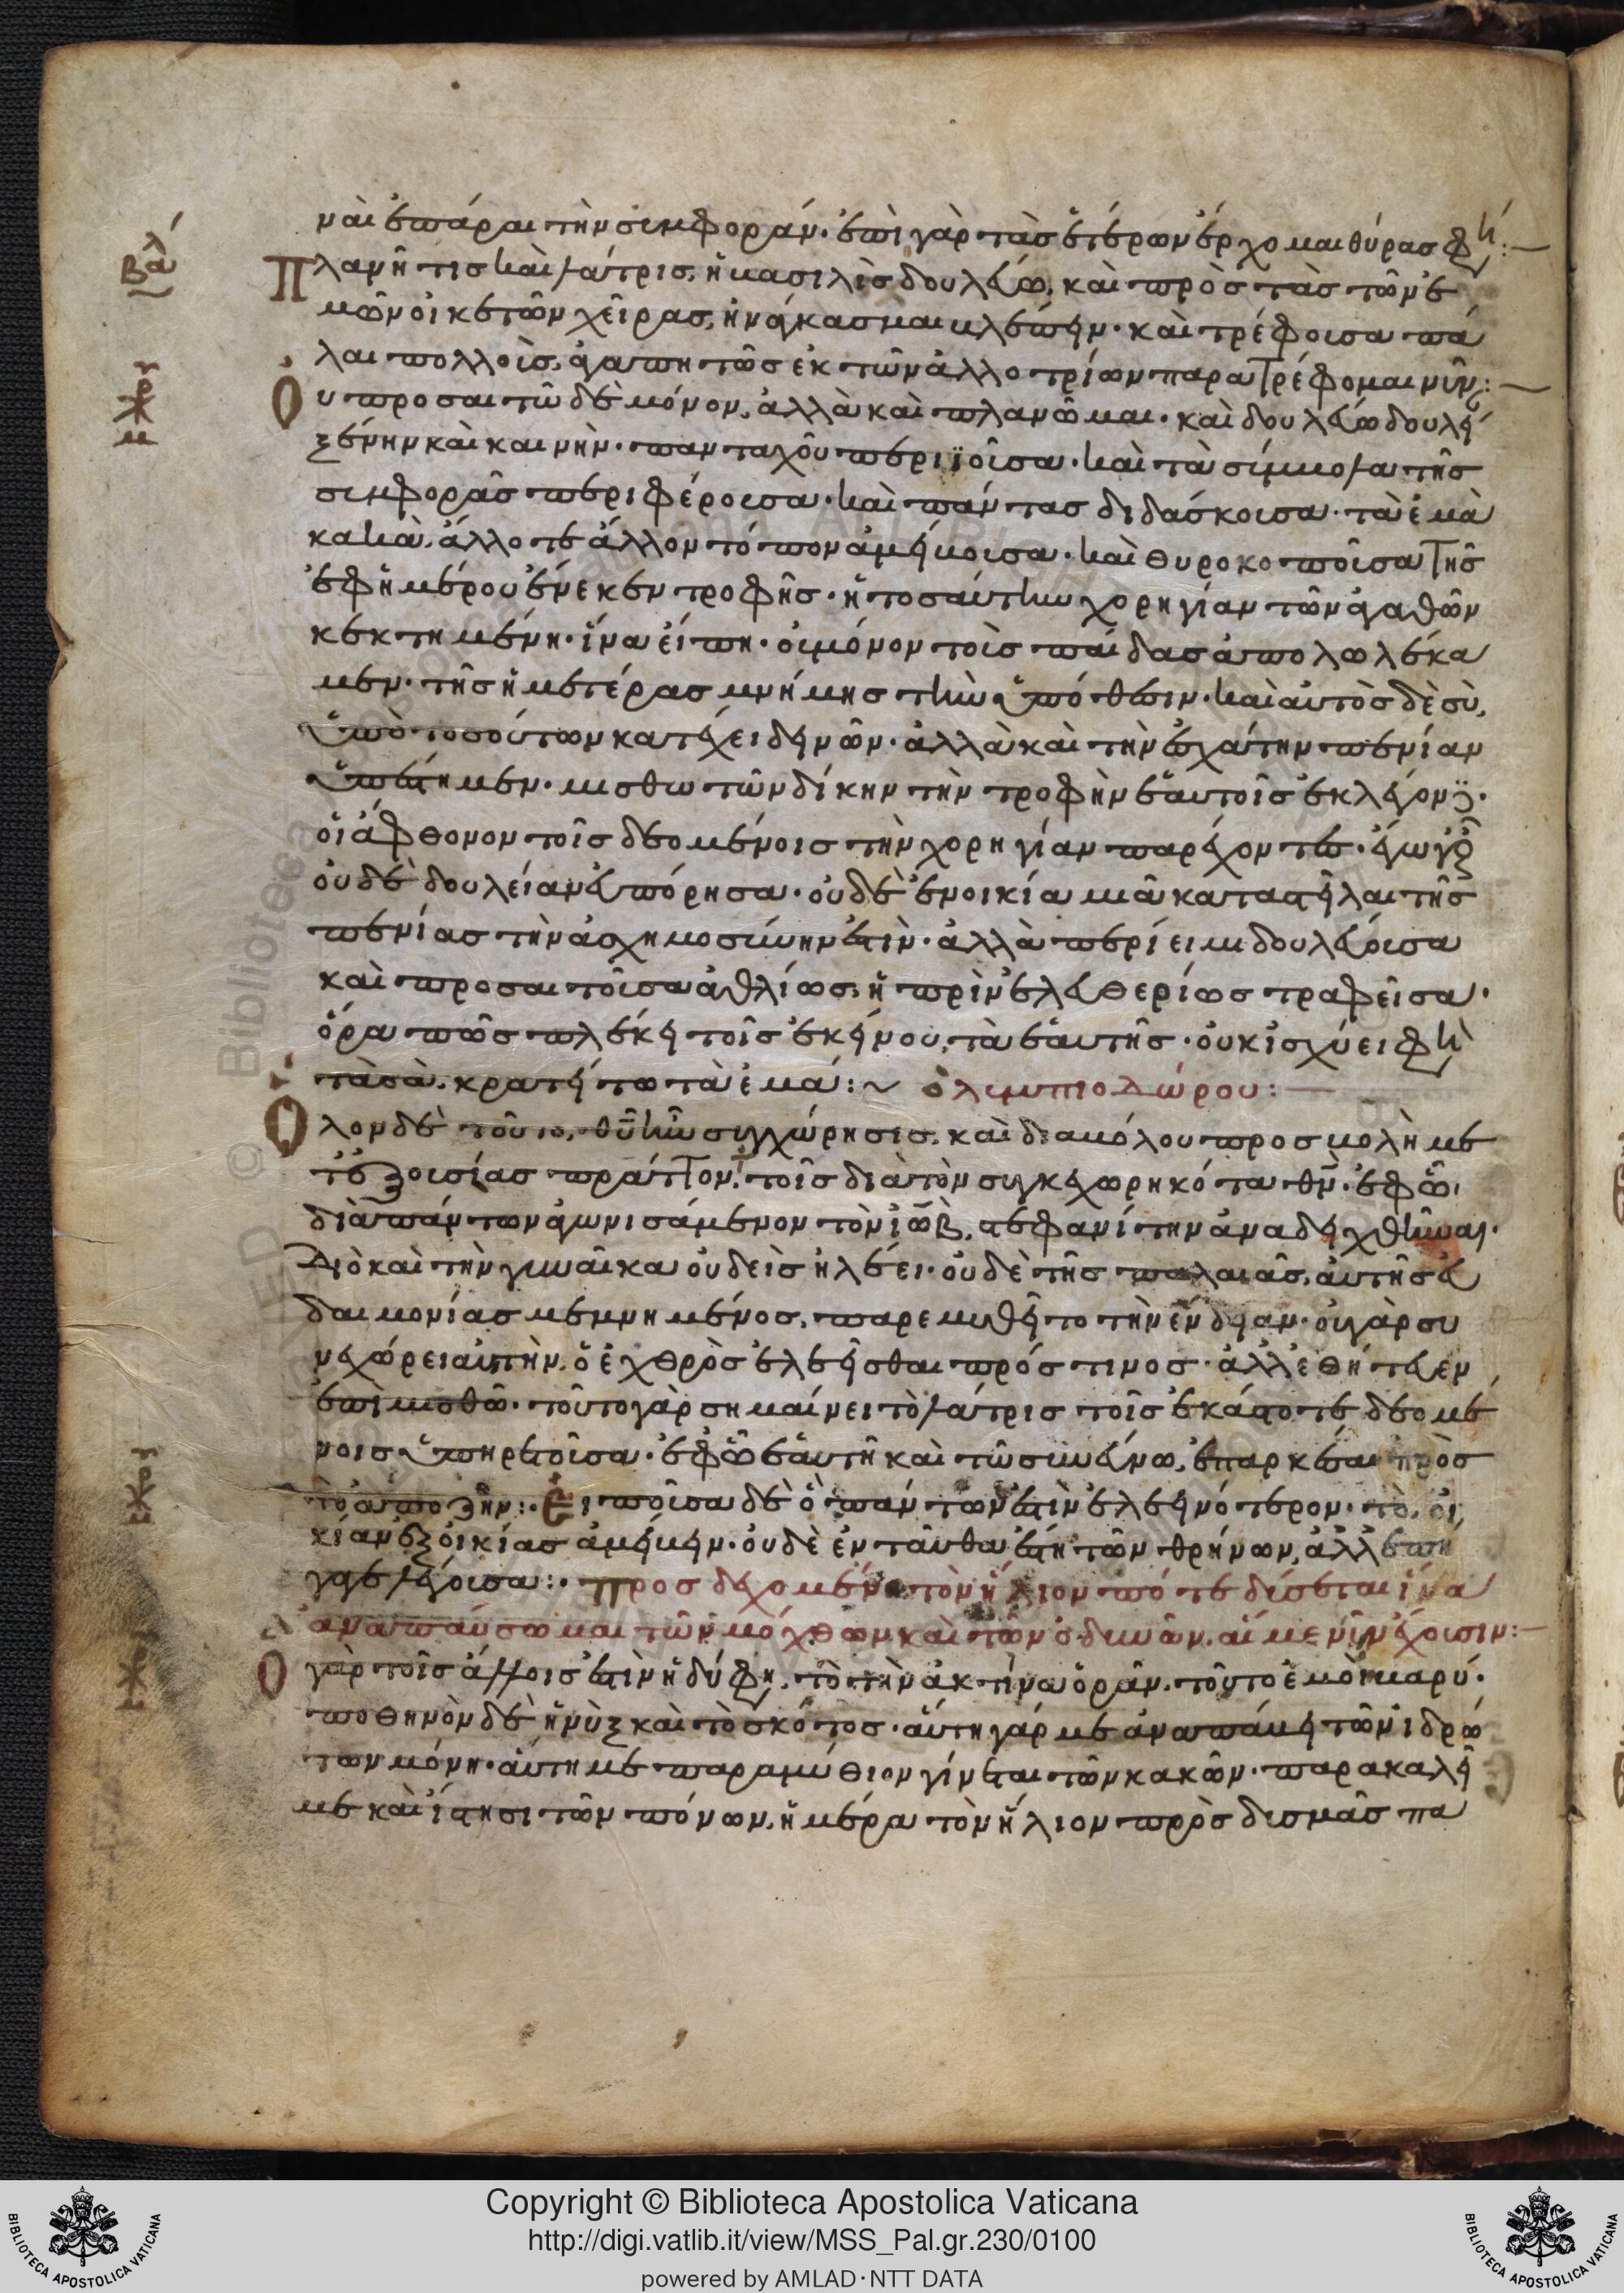 ναι ἐπάραι τὴν συμφοράν· ἐπὶ γὰρ τὰς ἑτέρων ἔρχομαι θύρας φη:—
Πλανῆτις καὶ λάτρις, ἡ βασιλὶς δουλεύω, καὶ πρὸς τὰς τῶν ἐ
μῶν οἰκετῶν χεῖρας, ἠνάγκασμαι βλέπειν· καὶ τρέφουσα πά
λαι πολλοὺς, ἀγαπητῶς ἐκ τῶν ἀλλοτρίων παρατρέφομαι νῦν:—
Οὐ προσαιτῶ δὲ μόνον, ἀλλὰ καὶ πλανῶμαι· καὶ δουλεύω δουλεί
ξένην καὶ καινὴν· πανταχοῦ περιϊοῦσα· καὶ τὰ σύμβολα τῆς
συμφορᾶς περιφέρουσα· καὶ πάντας διδάσκουσα τὰ ἐμὰ
κακὰ, ἄλλοτε ἄλλον τόπον ἀμείβουσα· καὶ θυροκοποῦσα τῆς
ἐφημέρου ἕνεκεν τροφῆς· ἡ τοσαύτην χορηγίαν τῶν ἀγαθῶν
κεκτημένη· ἵνα εἴπη· οὐ μόνον τοὺς παῖδας ἀπολωλέκα
μεν· τῆς ἡμετέρας μνήμης τὴν ὑπόθεσιν· καὶ αὐτὸς δὲ σὺ,
ὑπὸ τοσούτων κατέχει δεινῶν· ἀλλὰ καὶ τὴν ἐσχάτην πενίαν
ὑπέστημεν· μισθωτῶν δίκην τὴν τροφὴν ἑαυτοῖς ἐκλέγον
οἱ ἄφθονον τοῖς δεομένοις τὴν χορηγίαν παρέχοντες· ἐγὼ γὰρ
οὐδὲ δουλείαν εὐπόρησα· οὐδὲ ἐν οἰκία μιᾶ καταστεῖλαι τῆς
πενίας τὴν ἀσχημοσύνην ἐστὶν· ἀλλὰ περίειμι δουλεύουσα
καὶ προσαιτοῦσα ἀθλίως, ἡ πρὶν ἐλευθερίως τραφεῖσα·
ὅρα πῶς πλέκει τοῖς ἐκείνου, τὰ ἑαυτῆς· οὐκ ἰσχύει φη
τὰ σὰ, κρατείτω τὰ ἐμά:~ ὀλυμπιοδώρου:—
Ὅλον δὲ τοῦτο, θυ ἦν συγχώρησις, καὶ διαβόλου προσβολὴ με
τ' ἐξουσίας πράττοντ τοῖς διὰ τὸν συγκεχωρηκότα θν· ἐφ' ᾧ,
διὰ πάντων ἀγωνισάμενον τὸν ἰὼβ, στεφανίτην ἀναδειχθῆναι·
Διὸ καὶ τὴν γυναῖκα οὐδεὶς ἠλέει· οὐδὲ τῆς παλαιᾶς, αὐτῆς εὐ
δαιμονίας μεμνημένος, παρεμυθεῖτο τὴν ἔνδειαν· οὐ γὰρ συ
νεχώρει αὐτὴν, ὁ ἐχθρὸς ἐλεεῖσθαι πρός τινος· ἀλλ' ἐθήτευεν
ἐπὶ μισθῶ· τοῦτο γὰρ σημαίνει τὸ λάτρις τοῖς ἑκάστοτε δεομέ
νοις ὑπηρετοῦσα· ἐφ' ᾧ ἑαυτῆ καὶ τῶ συνεύνω, ἐπαρκέσαι πρὸς
τὸ ἀποζῆν:· Εἰποῦσα δὲ ὃ πάντων ἐστὶν ἐλεεινότερον· τὸ, οἰ
κίαν ἐξ οἰκίας ἀμείβειν· οὐδὲ ἐνταῦθα ἔστη τῶν θρήνων, ἀλλ' ἐπή
γαγε λέγουσα:· προσδεχομένη τὸν ἥλιον πότε δύσεται ἵνα
ἀναπαύσωμαι τῶν μόχθων καὶ τῶν ὀδυνῶν, αἵ με νῦν ἔχουσιν:—
Ὃ γὰρ τοῖς ἄλλοις ἐστὶν ἡδύ φη, τὸ τὴν ἀκτῖνα ὁρᾶν, τοῦτο ἐμὸι βαρύ·
ποθηνὸν δὲ ἡ νὺξ καὶ τὸ σκότος· αὕτη γάρ με ἀναπαύει τῶν ἱδρώ
των μόνη· αὕτη με παραμύθιον γίνεται τῶν κακῶν· παρακαλεῖ
με καὶ ἵστησι τῶν πόνων, ἡμέρα τὸν ἥλιον πρὸς δυσμᾶς πα
Βασιλ
Χρυσ
Χρυσ
Χρυσ
Copyright © Biblioteca Apostolica Vaticana
http://digi.vatlib.it/view/MSS_Pal.gr.230/0100
powered by AMLAD·NTT DATA
BIBLIOTECA APOSTOLICA VATICANA
BIBLIOTECA APOSTOLICA VATICANA